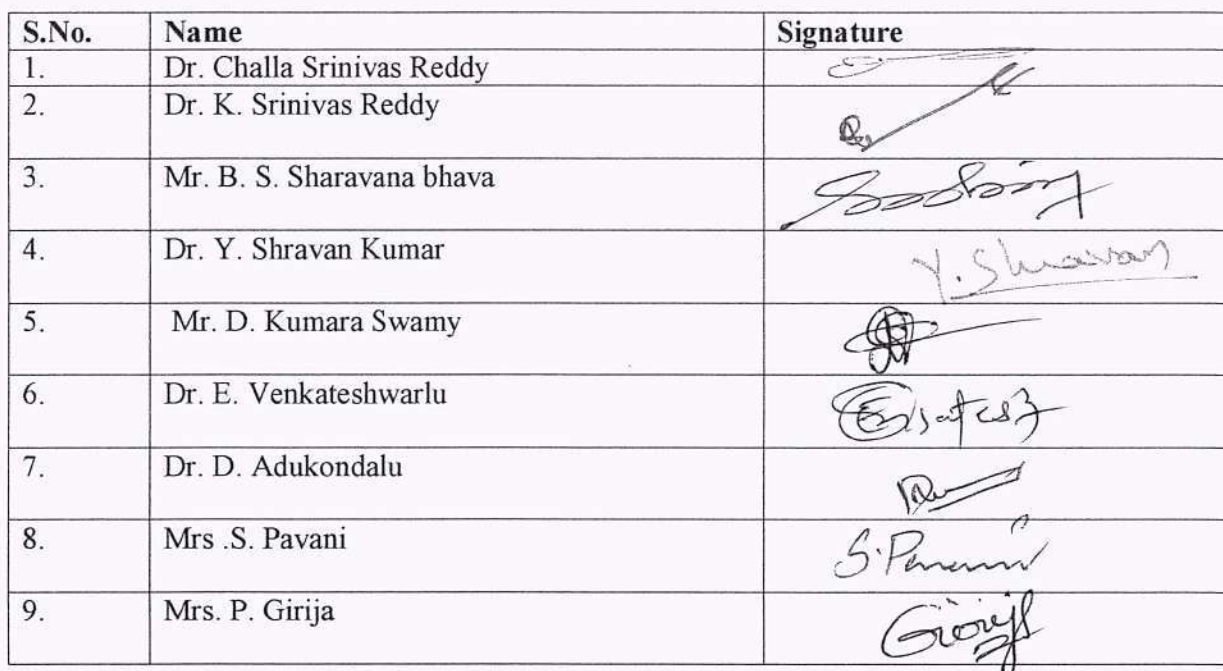 S.No. Name Signature
1. Dr. Challa Srinivas Reddy
2. Dr. K. Srinivas Reddy
3. Mr. B. S. Sharavana bhava
4. Dr. Y. Shravan Kumar Y. Shravan
5. Mr. D. Kumara Swamy
6. Dr. E. Venkateshwarlu
7. Dr. D. Adukondalu
8. Mrs .S. Pavani S. Pavani
9. Mrs. P. Girija Girija